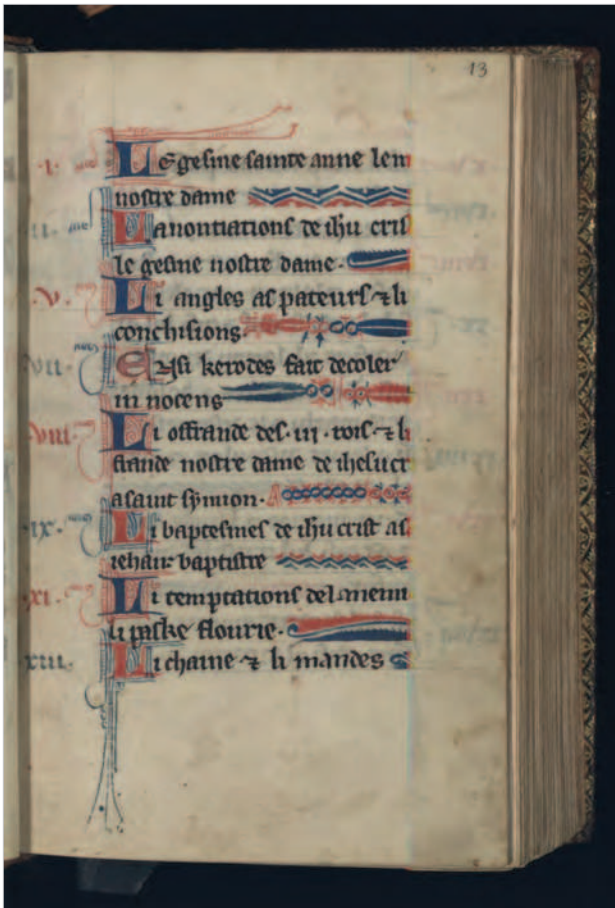 13
.I. me Le gesine sainte anne lem
nostre dame
.II. me Lanontiations de ihu cris
le gesine nostre dame.
.V. Li angles as pateurs ⁊ li
conchisions.
VII. me Ensi kerodes fait decoler
in nocens
VIII. Li offrande des .III. rois ⁊ li
frande nostre dame de ihesucr
a saint symon.
.IX. me Li baptesmes de ihu crist as
iehan baptistre
.XI. Li temptations del anemi
li paske flourie.
XIII. Li chaine ⁊ li mandes